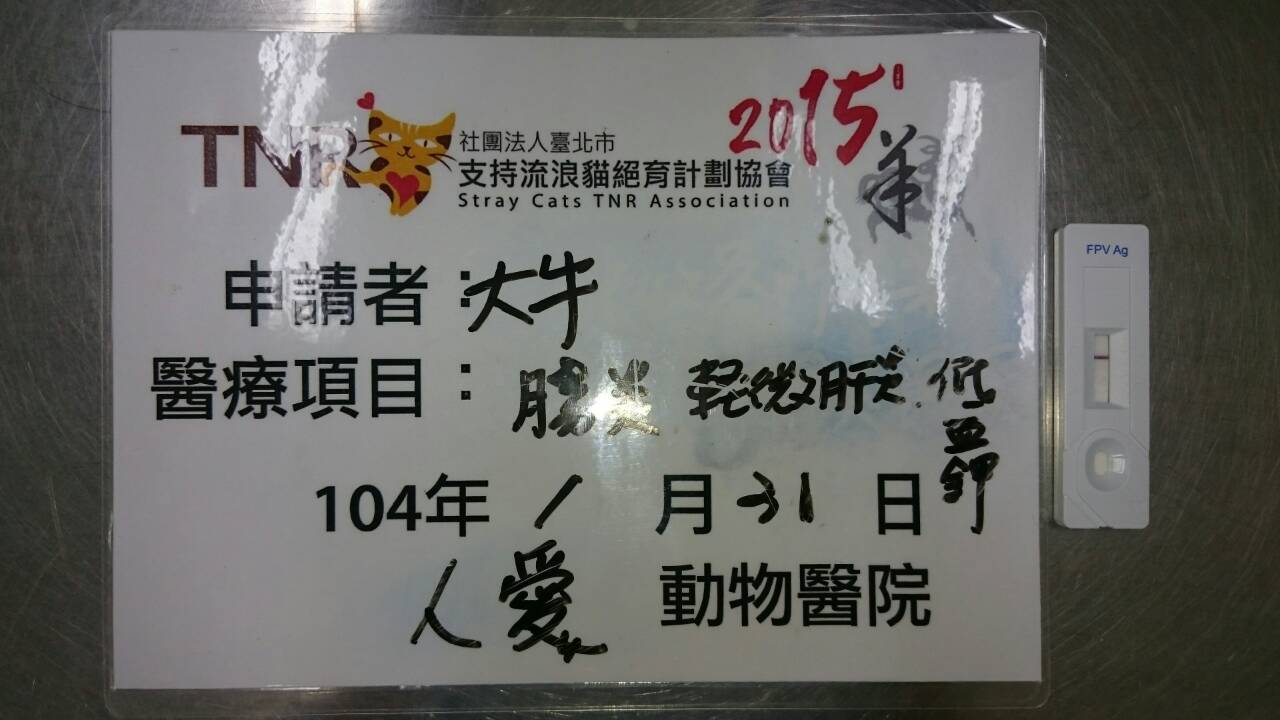 TNR
社團法人臺北市
支持流浪貓絕育計劃協會
Stray Cats TNR Association
2015
羊
申請者：大牛
醫療項目：腸炎 輕微肝炎.低血鉀
104年 1 月 31 日
人愛 動物醫院
FPV Ag